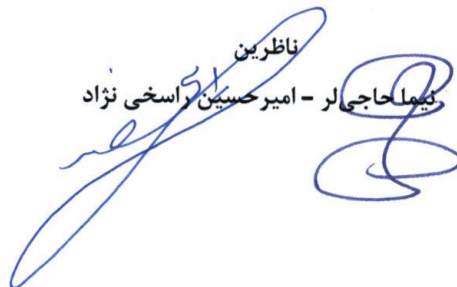 ناظرین
نیما حاجی‌لر – امیرحسین راسخی نژاد